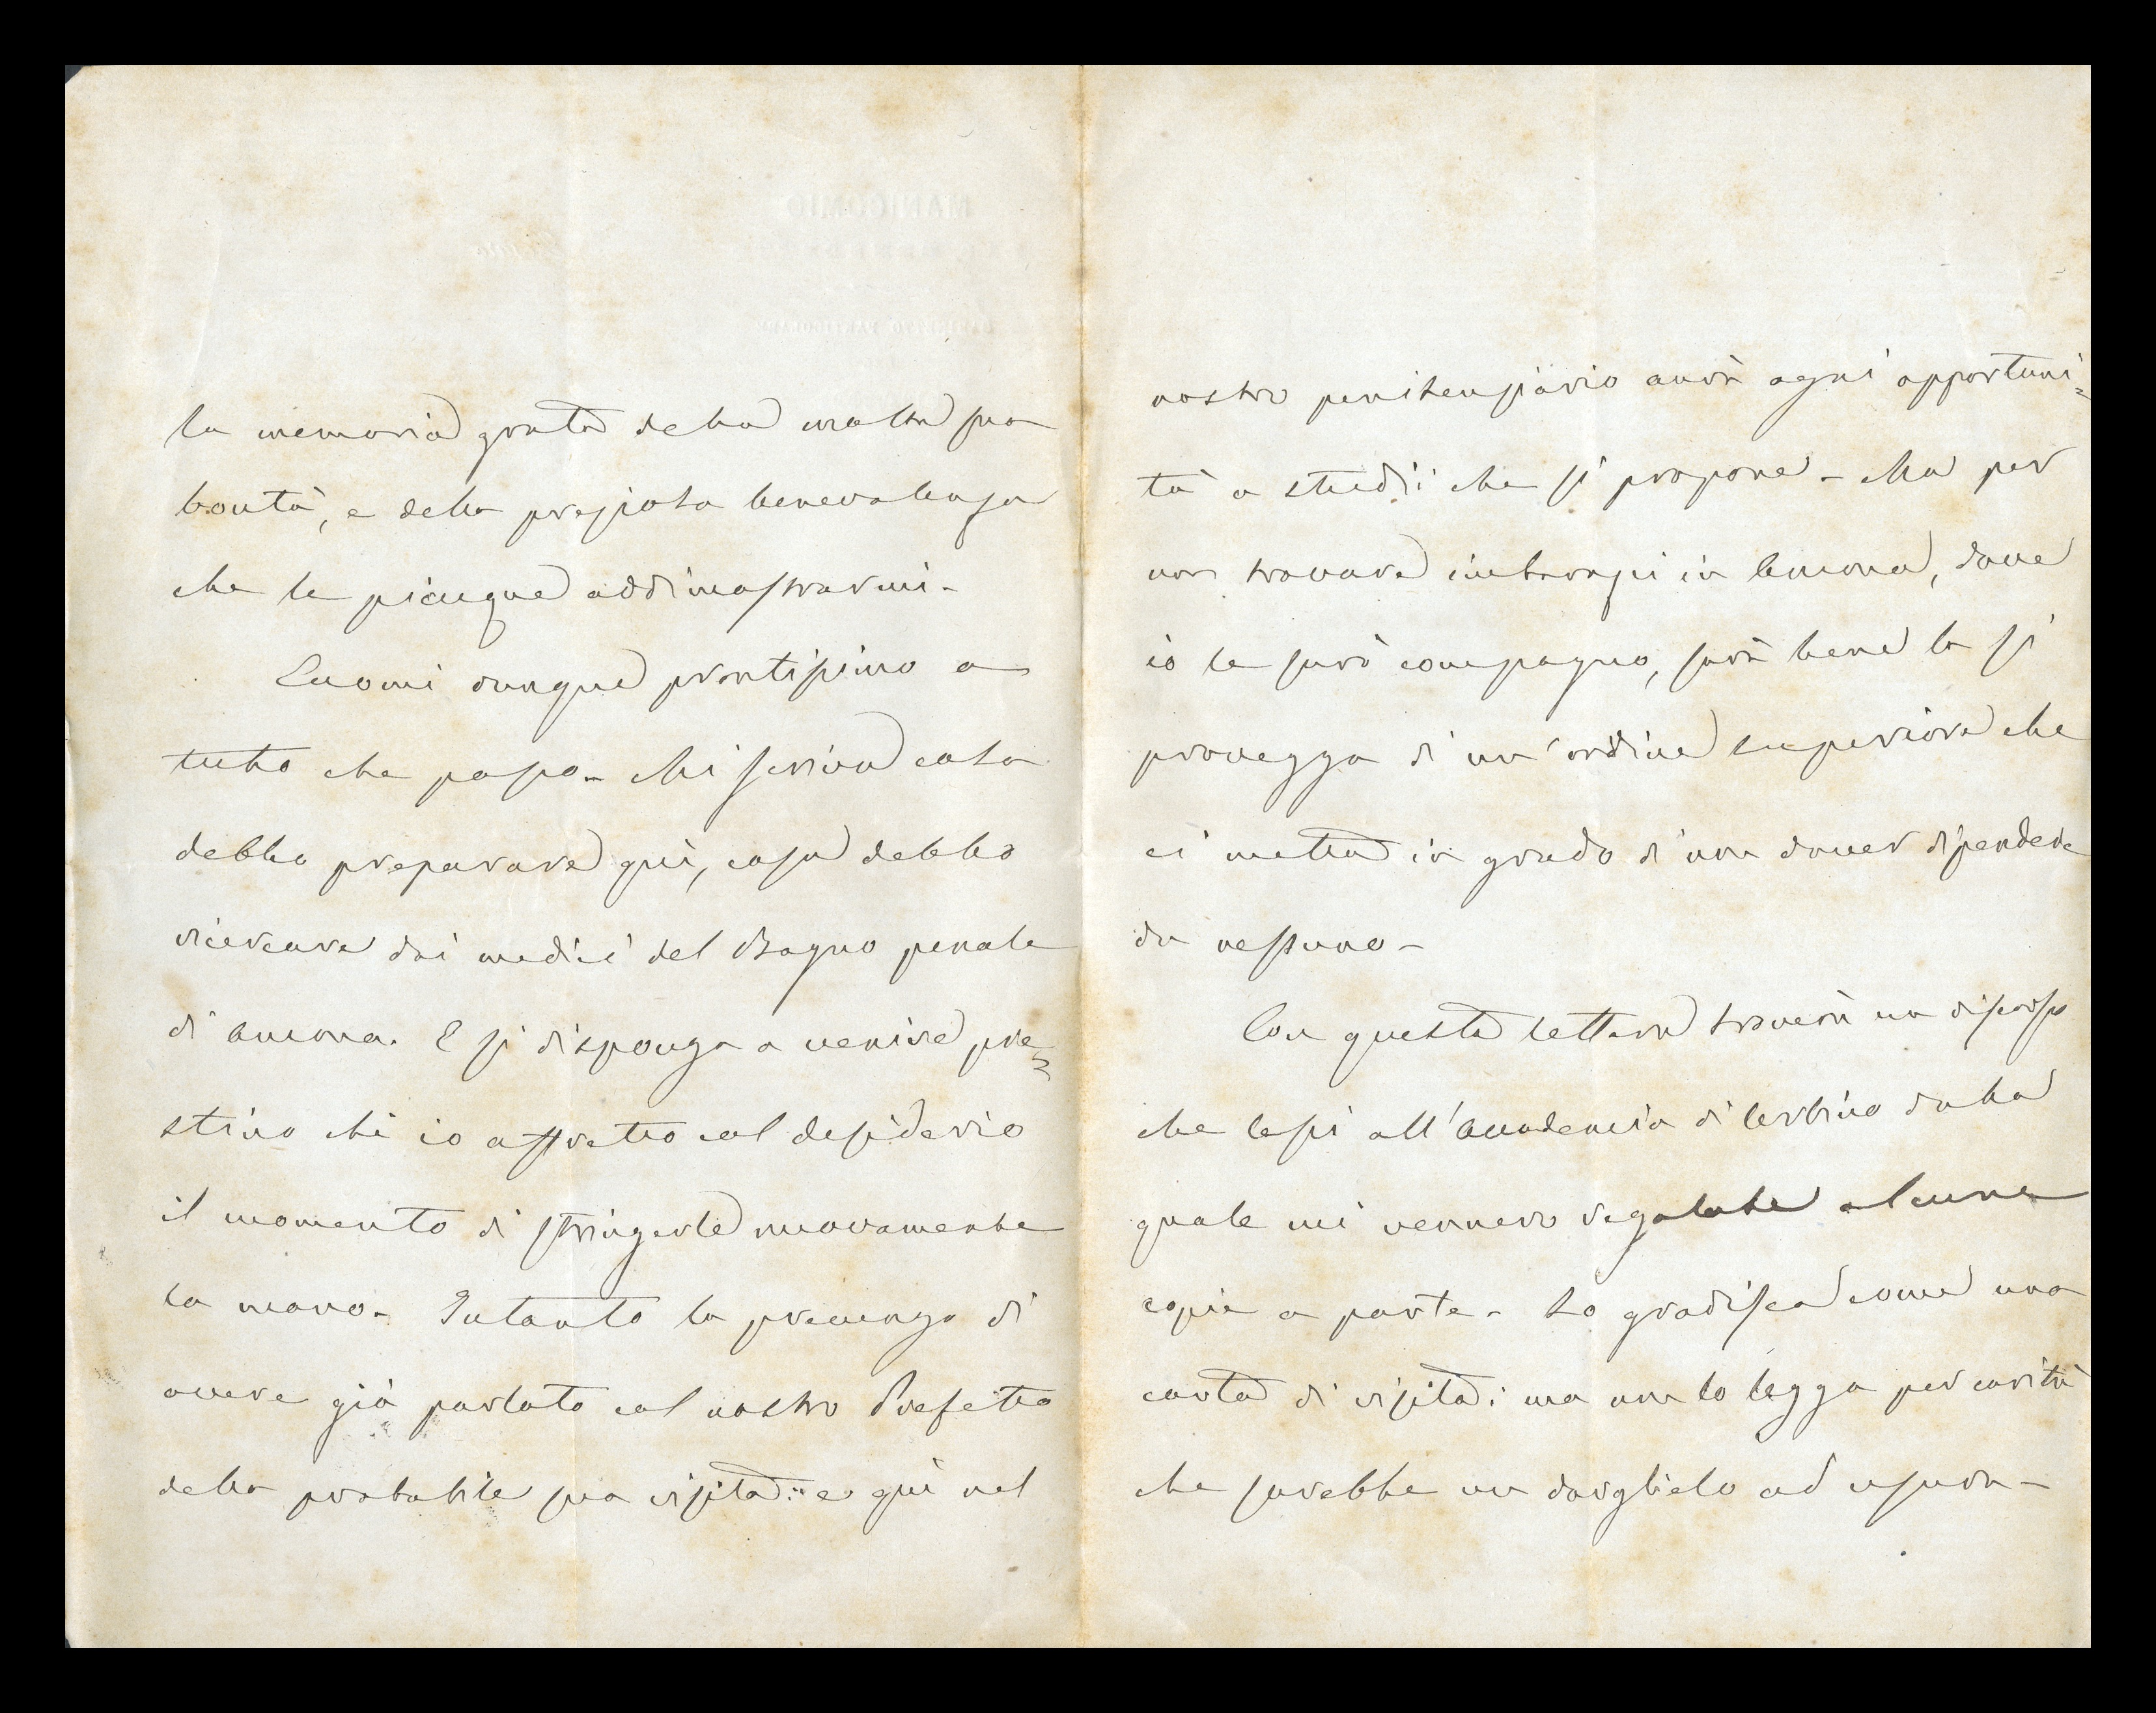 la memoria grata della molta sua
bontà, e della preziosa benevolenza
che le piacque addimostrarmi -
Eccomi dunque prontissimo a
tutto che posso - Mi scriva cosa
debbo preparare quì, cosa debbo
ricercare dai medici del Bagno penale
di Ancona. E si disponga a venire pre=
stino chè io affretto col desiderio
il momento di stringerle nuovamente
la mano - Intanto la prevengo di
avere già parlato col nostro Prefetto
della probabile sua visita: e quì nel
nostro penitenziario avrà ogni opportuni=
tà a studii che si propone - Ma per
non trovare intoppi in Ancona, dove
io le sarò compagno, sarà bene la si
provegga di un'ordine superiore che
ci metta in grado di non dover dipendere
da nessuno -
Con questa lettera troverà un discorso
che lessi all'Accademia di Urbino dalla
quale mi vennero regalate alcune
copie a parte - Lo gradisca come una
carta di visita: ma non lo legga per carità
che sarebbe un darglielo ad usura -